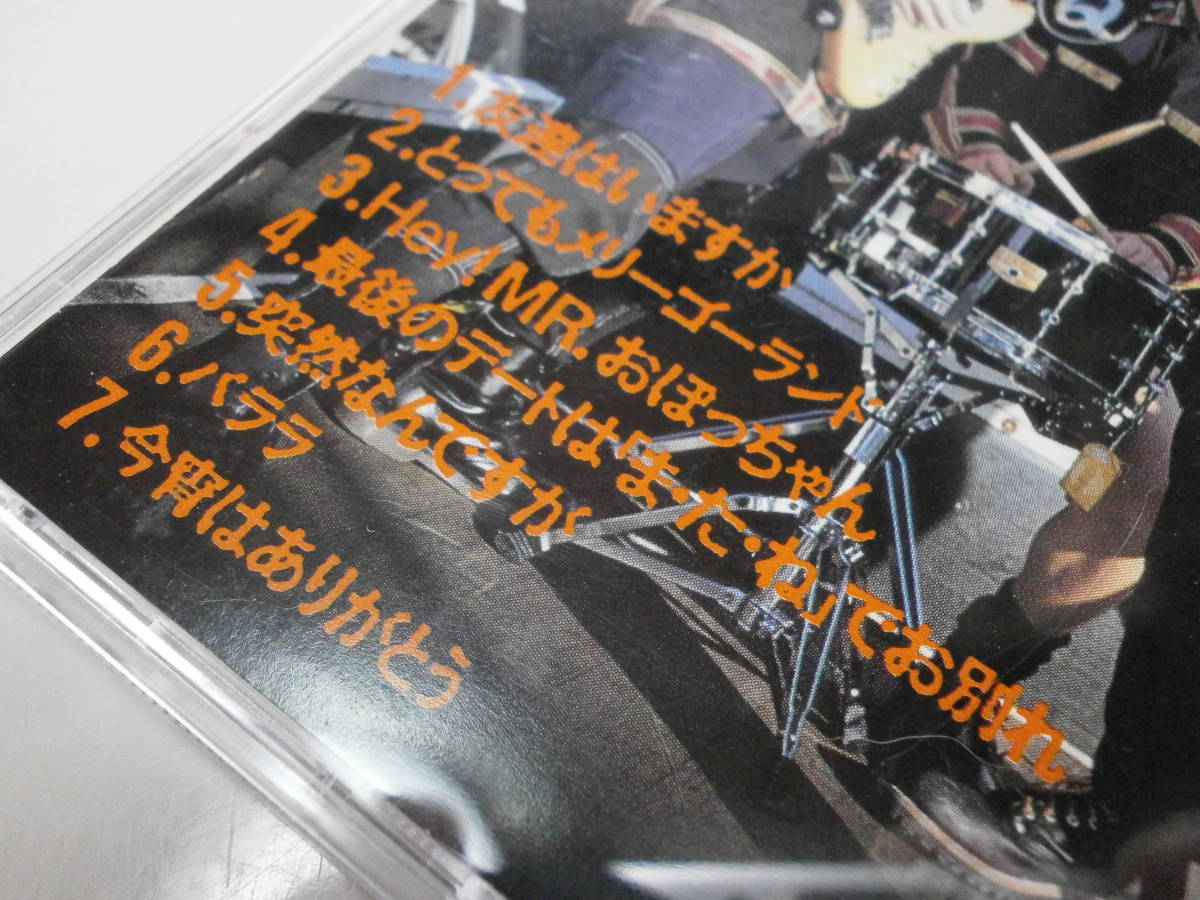 1.友達はいますか
2.とってもメリーゴーランド
3.Hey!MR.おぼっちゃん
4.最後のデートは「ま・た・ね」でお別れ
5.突然なんですが
6.バララ
7.今宵はありがとう
Q